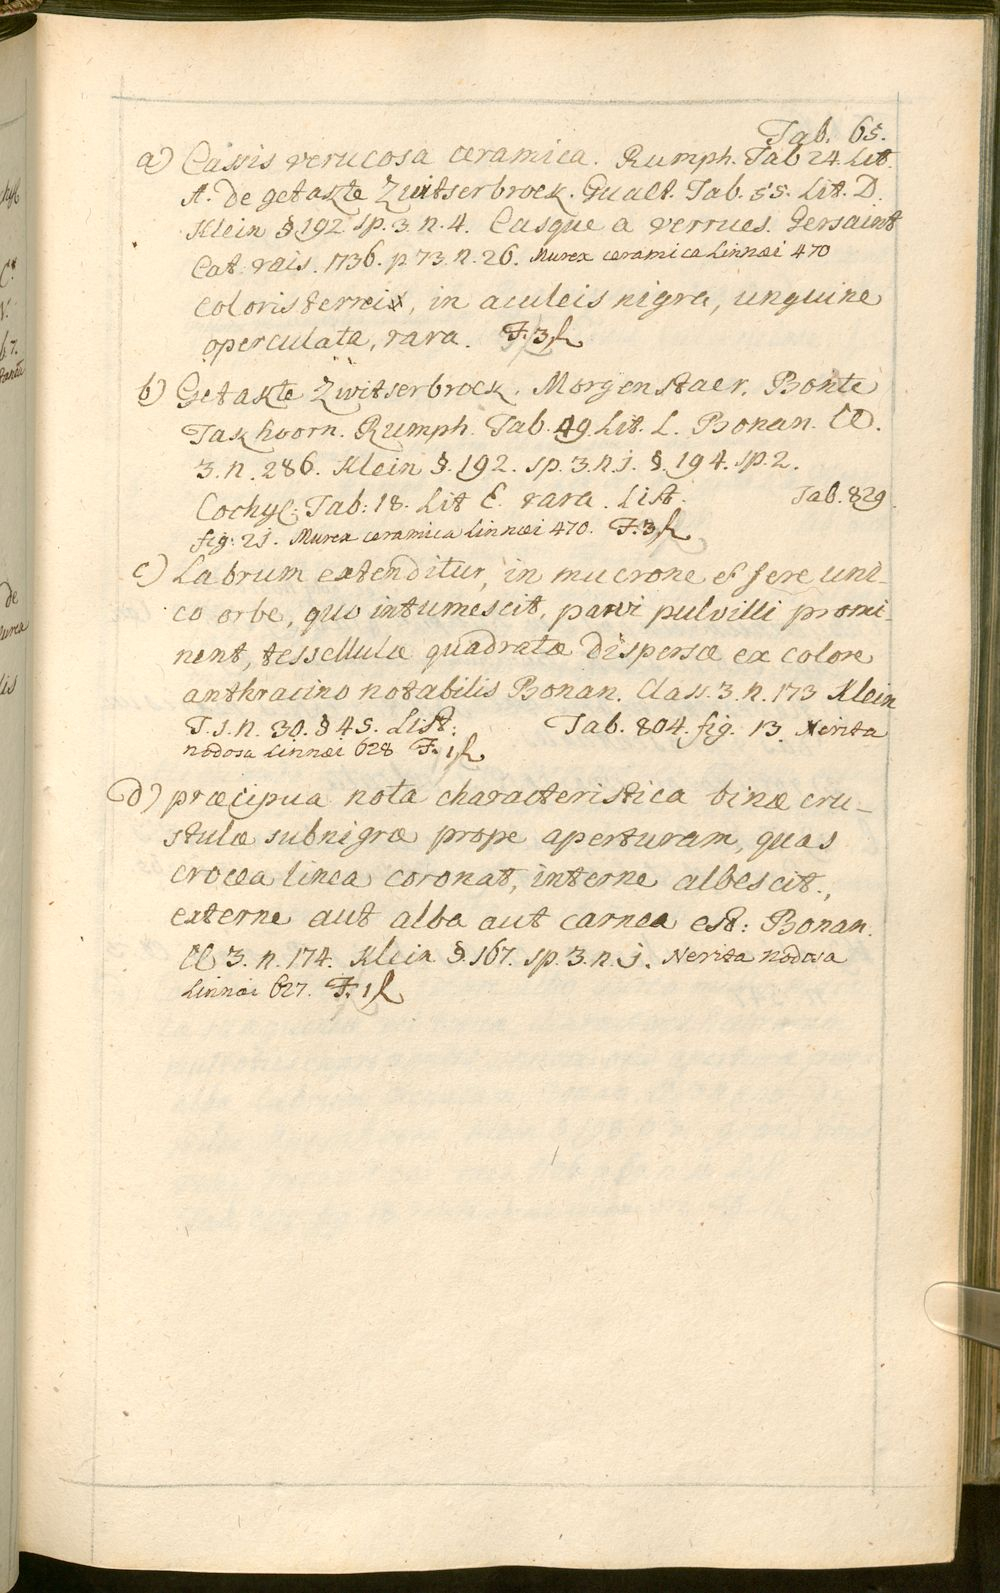 Tab. 65.
a) Cassis verucosa ceramica. Rumph. Tab 24. Lit.
A. De getakte Zwitserbroek. Gualt. Tab. 55. Lit. D.
Klein § 192 sp. 3. n. 4. Casque a verrues. Gersaint
Cat: rais. 1736. p 73. n. 26. Murex ceramica Linnæi 470
coloris terrei, in aculeis nigra, unguine
operculata, rara. F. 3 fl
b) Getakte Zwitserbroek. Morgenstaer. Bonte
Takhoorn. Rumph. Tab. 49. Lit. L. Bonan. Cl.
3. n. 286. Klein §. 192. sp. 3. n j. §. 194. sp. 2.
Cochyl: Tab: 18. Lit E. rara. List. Tab. 829
fig: 2j. Murex ceramica Linnæi 470. F. 3 fl
c) Labrum extenditur, in mucrone et fere uni-
co orbe, quo intumescit, parvi pulvilli promi-
nent, tessellulæ quadratæ dispersæ ex colore
anthracino notabilis Bonan. Class. 3. n. 173 Klein
T. j. n. 30. § 45. List: Tab. 804. fig. 13. Nerita
nodosa Linnæi 628 F. 1 fl
d) præcipua nota characteristica binæ cru-
stulæ subnigræ prope aperturam, quas
crocea linea coronat, interne albescit.,
externe aut alba aut carnea est: Bonan.
Cl 3. n. 174. Klein §. 167. sp. 3. n. j. Nerita nodosa
Linnæi 627. F. 1 fl
C.
V.
de
lis